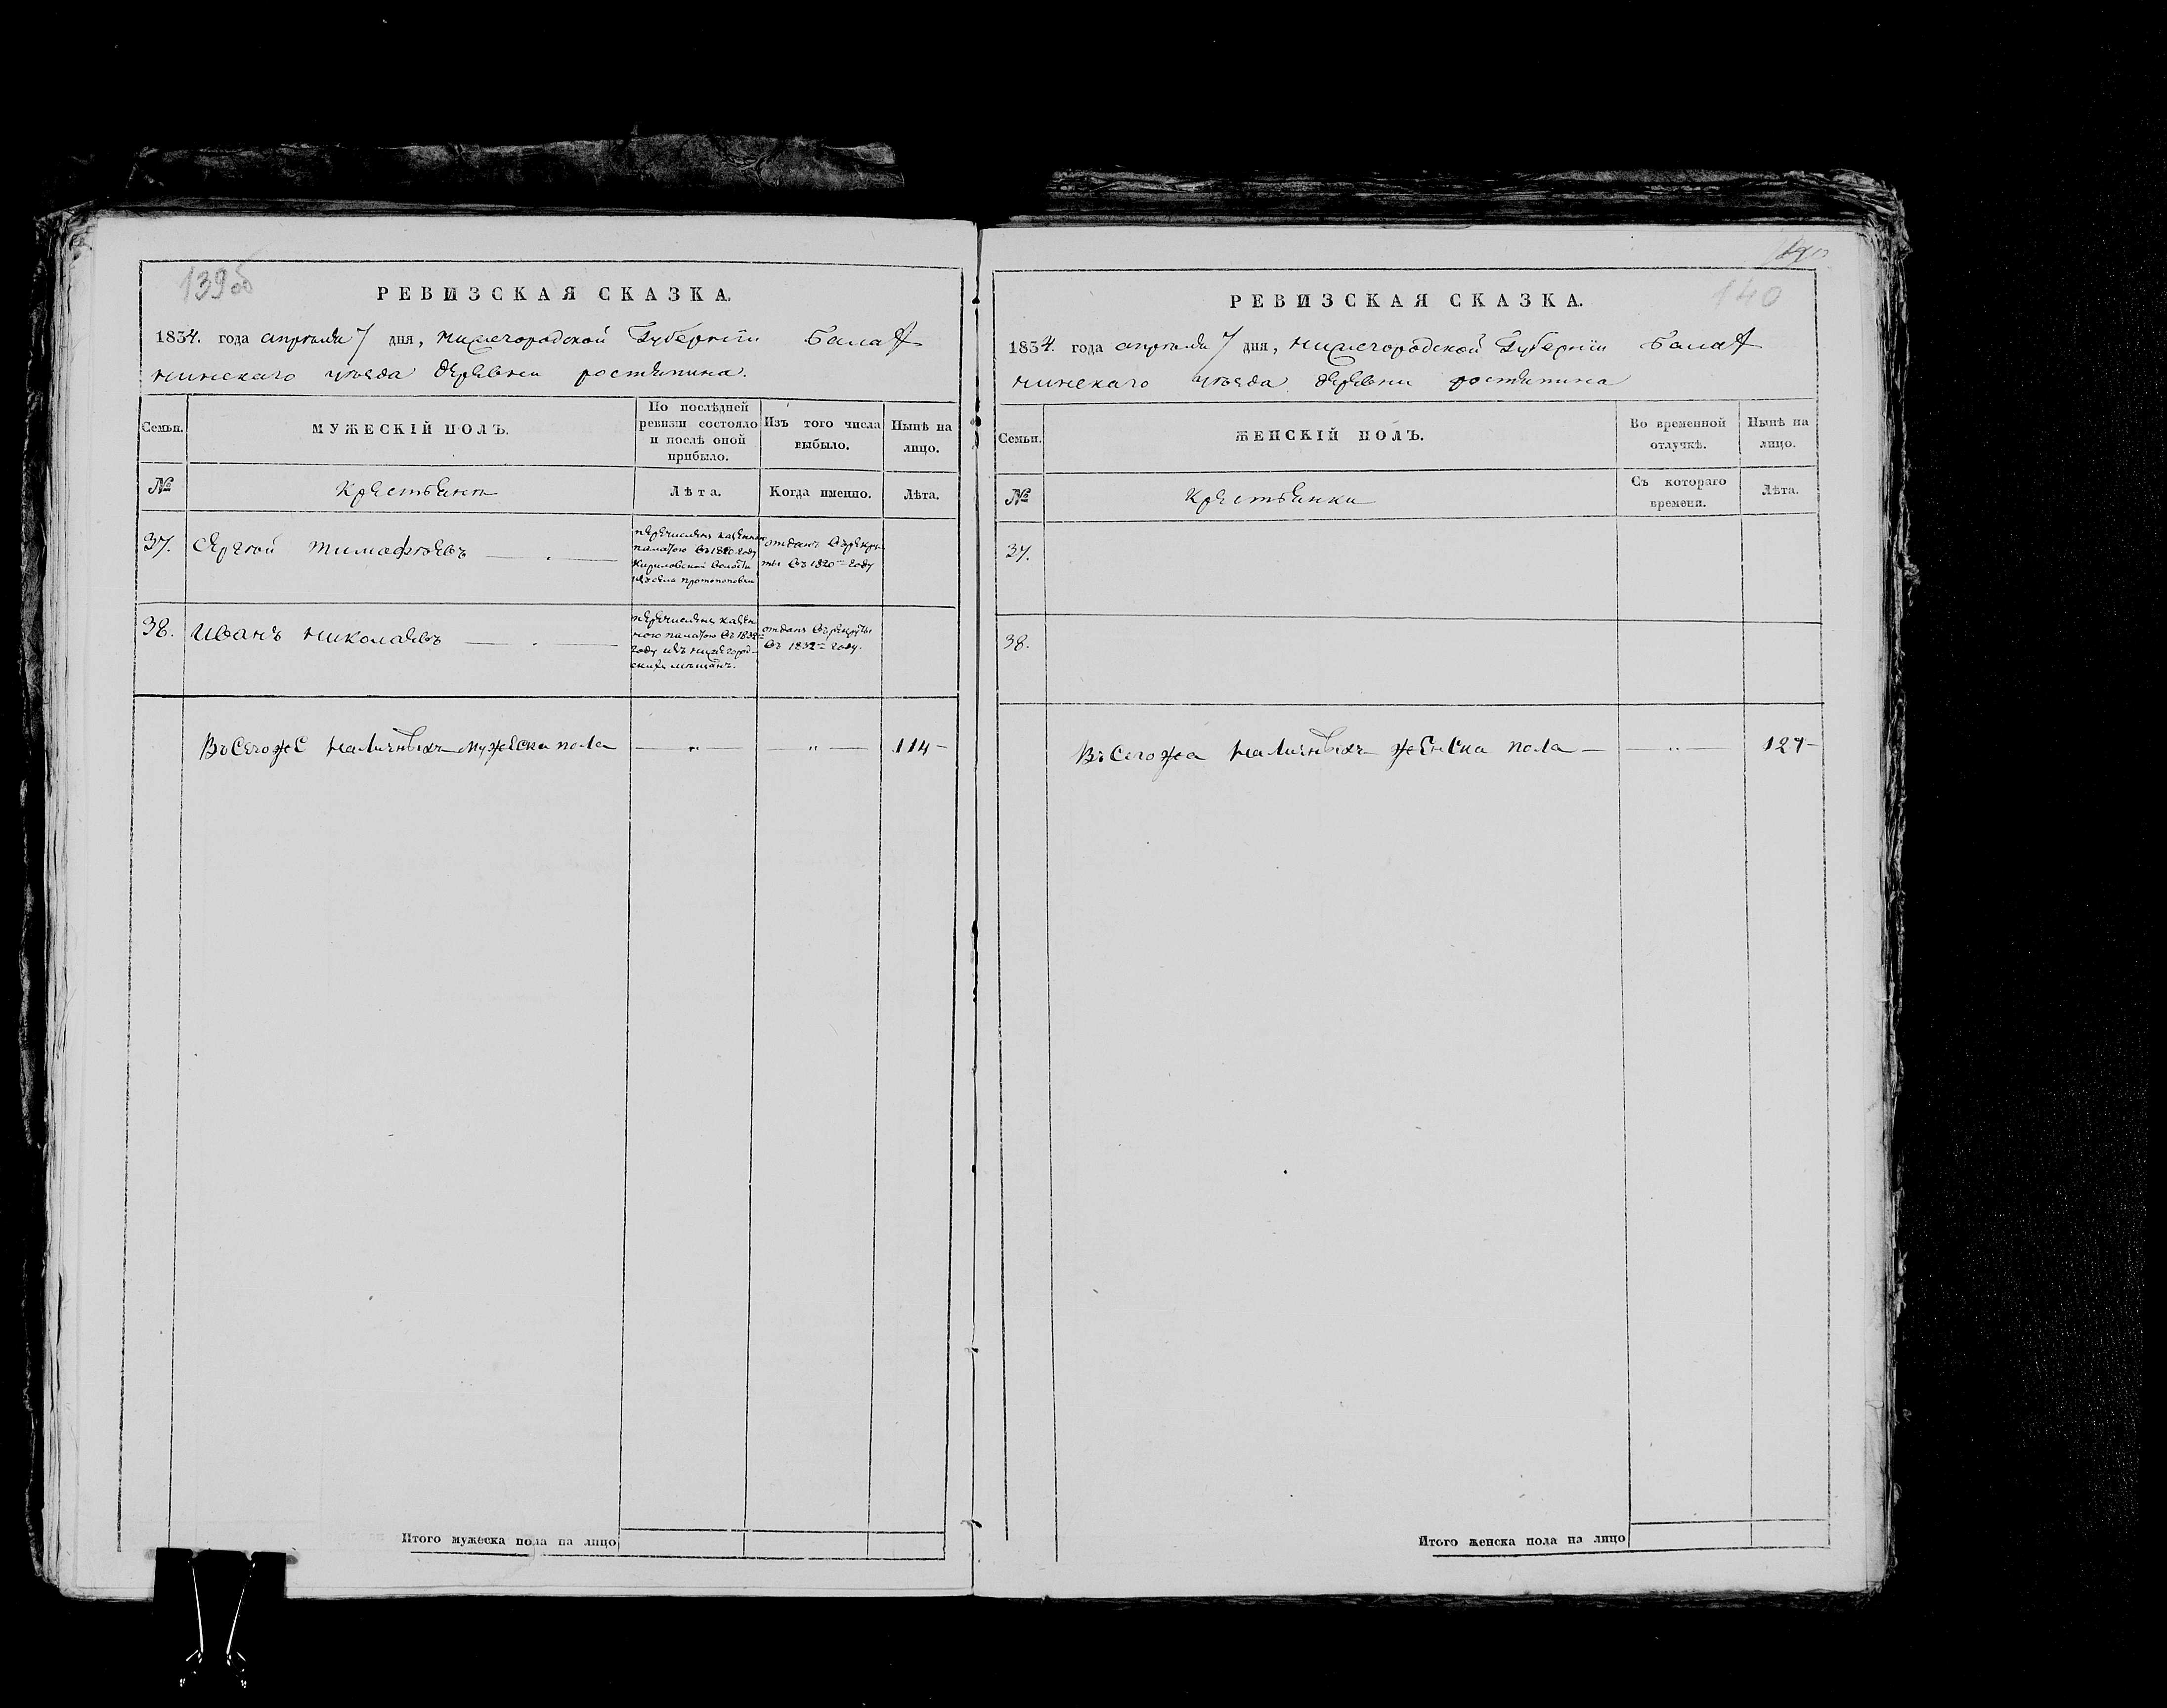 139об
РЕВИЗСКАЯ СКАЗКА.
1834. года апрѣля 7 дня, нижегородской Губернiи Балах
нинскаго уѣзда деревни ростяпина.
Семьи.
МУЖЕСКІЙ ПОЛЪ.
По послѣдней
ревизіи состояло
и послѣ оной
прибыло.
Изъ того числа
выбыло.
Нынѣ на
лицо.
№
Крестьянъ
Лѣта.
Когда именно.
Лѣта.
37.
Сергѣй тимафѣевъ
перечисленъ казенною
палатою въ 1820 году
Кириловской волости
изъ села протопоповки
отданъ въ рекру
ты въ 1820 году
38.
Иванъ николаевъ
перечисленъ казен
ною палатою въ 1832
году изъ нижегород
скихъ мещанъ.
отданъ въ рекруты
въ 1832 году.
Всегоже наличныхъ мужеска пола
114
Итого мужеска пола на лицо
140
РЕВИЗСКАЯ СКАЗКА.
1834. года апрѣля 7 дня, нижегородской Губернiи Балах
нинскаго уѣзда деревни ростяпина
Семьи.
ЖЕНСКІЙ ПОЛЪ.
Во временной
отлучкѣ.
Нынѣ на
лицо.
№
Крестьянки
Съ котораго
времени.
Лѣта.
37.
38.
Всегожа наличныхъ женска пола
Итого женска пола на лицо